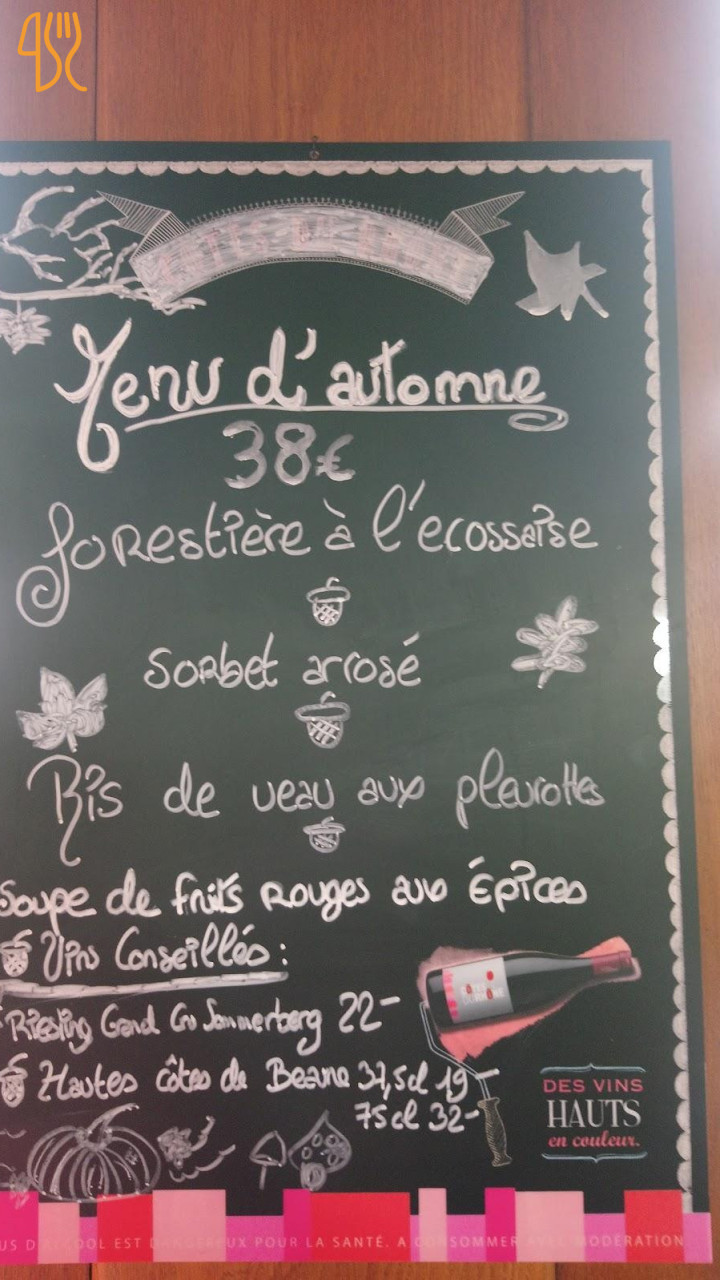 Menu d'automne
38€
forestière à l'ecossaise
Sorbet arrosé
Ris de veau aux pleurottes
Soupe de fruits rouges aux Épices
Vins Conseillés :
Riesling Grand Cru Sommerberg 22-
Hautes côtes de Beaune 37,5cl 19-
75cl 32-
DES VINS
HAUTS
en couleur.
US D'ALCOOL EST DANGEREUX POUR LA SANTÉ. A CONSOMMER AVEC MODÉRATION